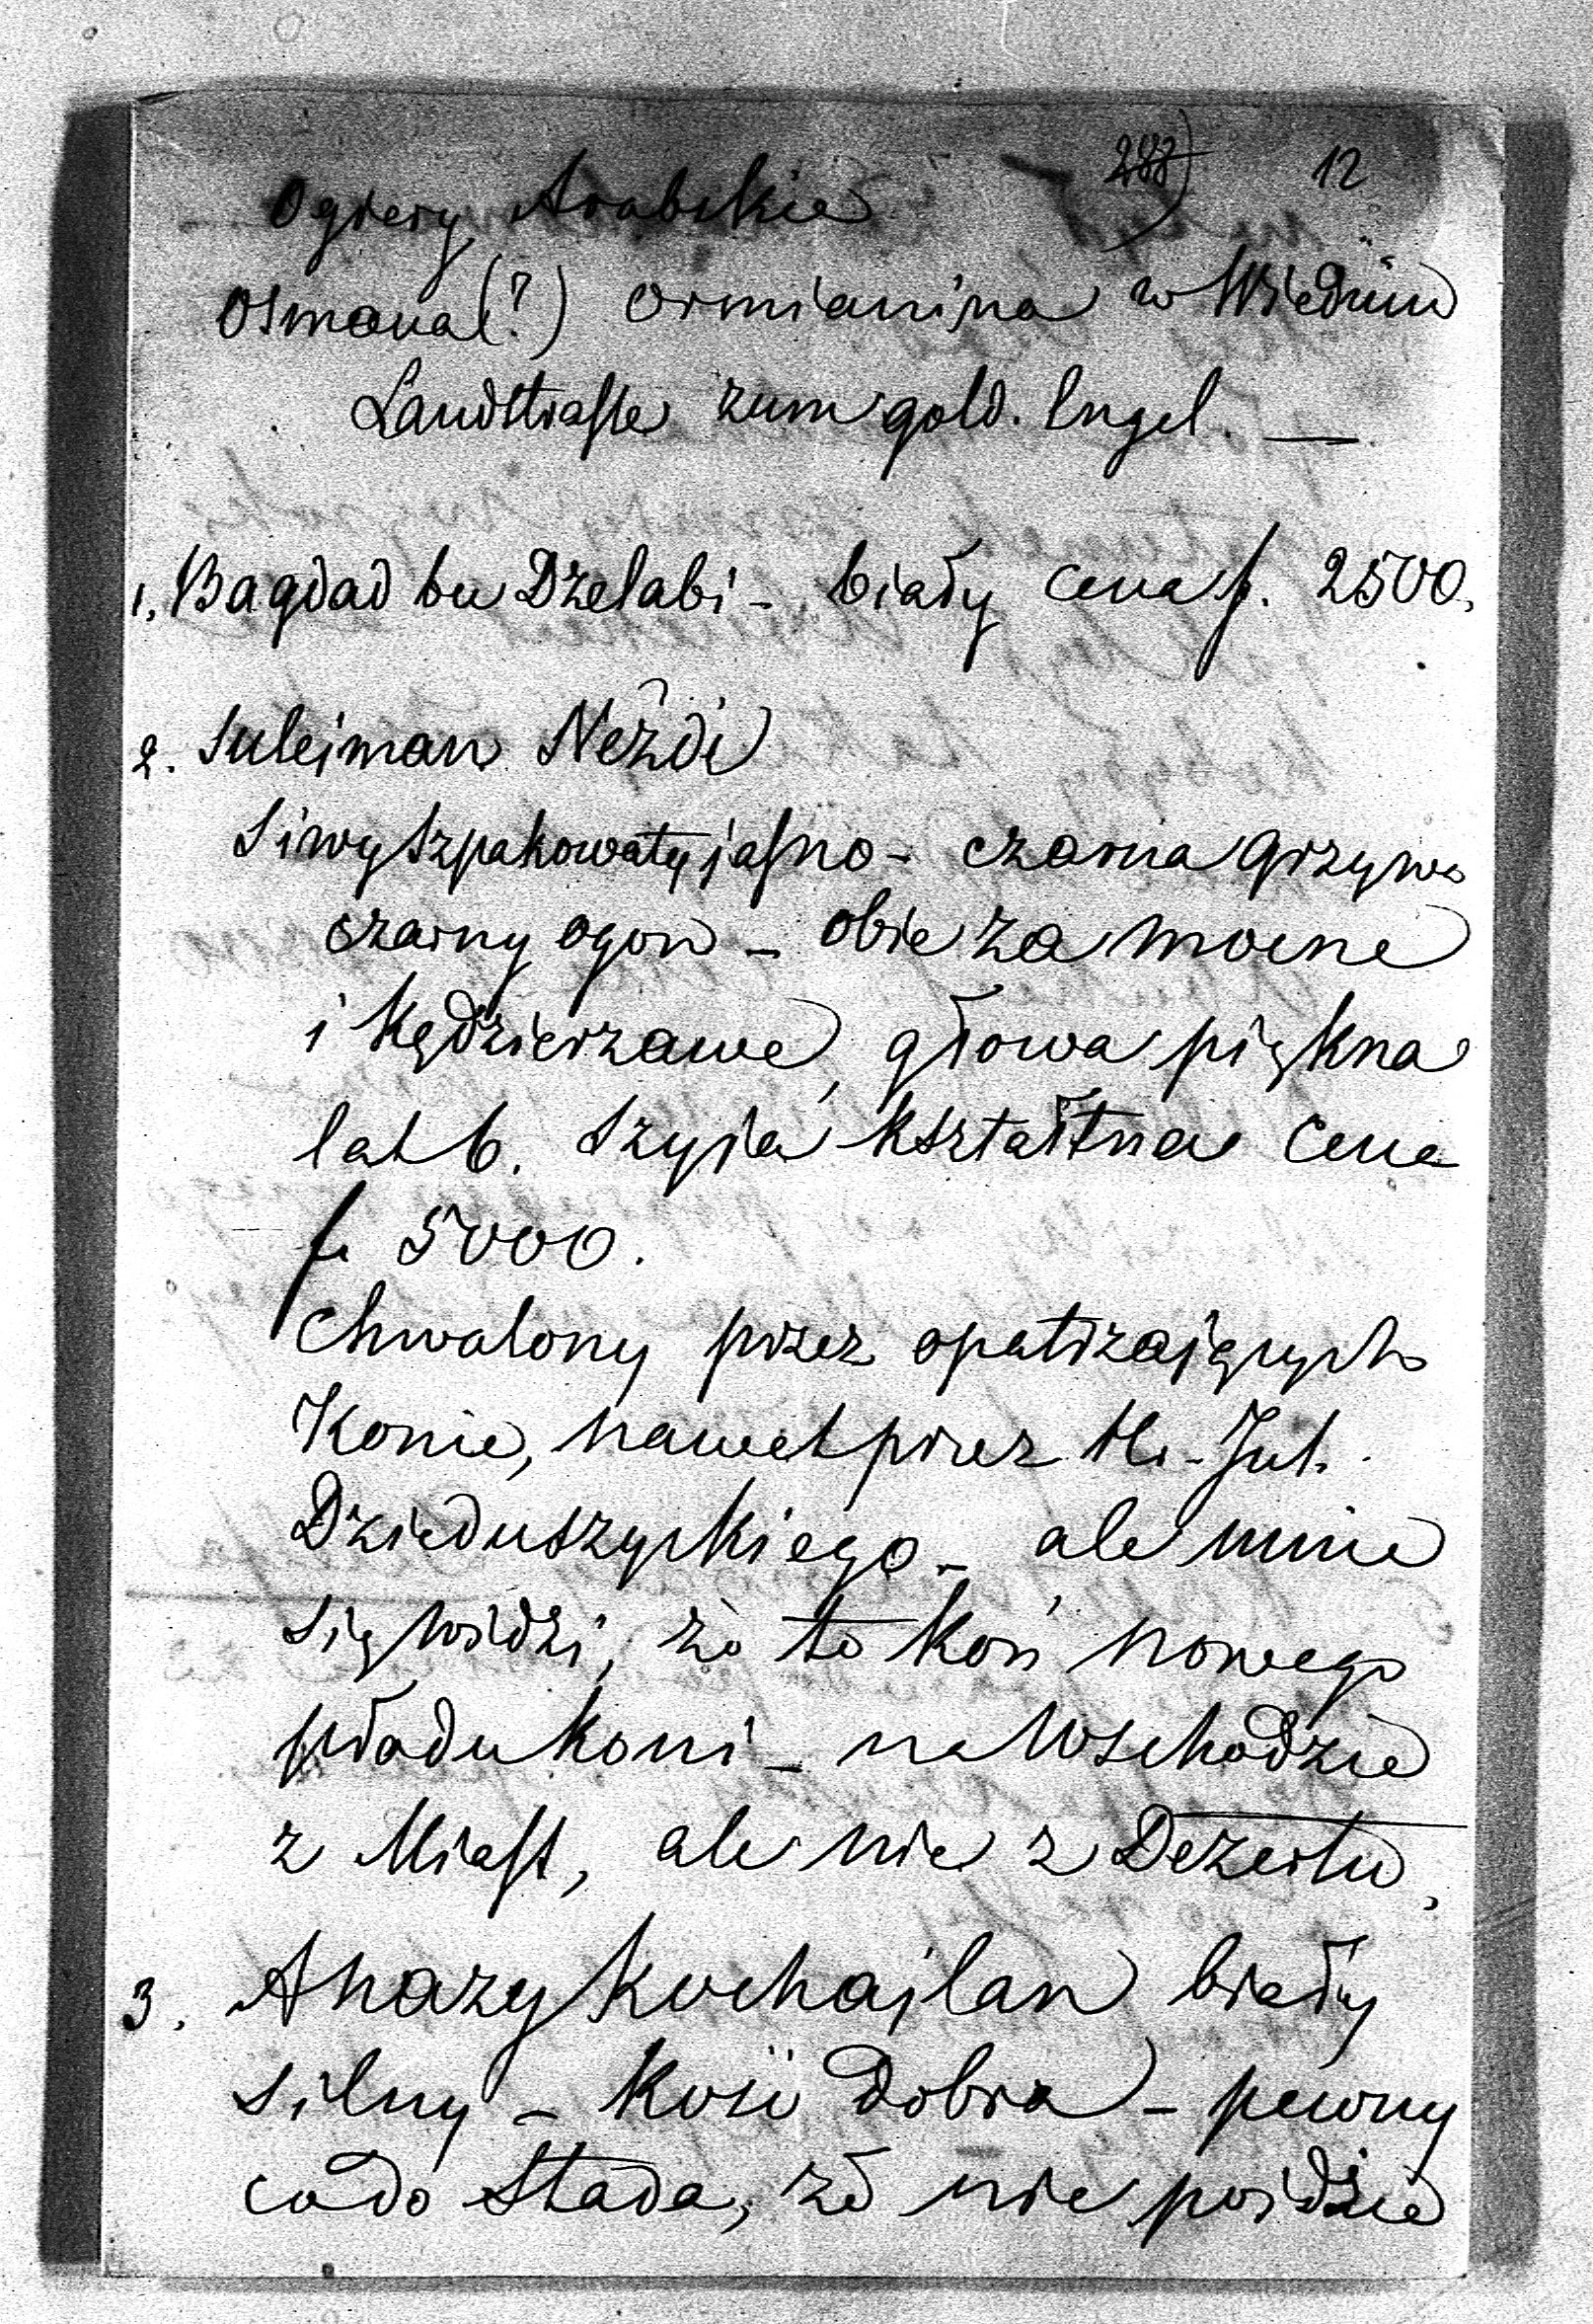 288) 12
Ogiery Arabskie
Osmana(?) Ormianina w Wiedniu
Landstraſse zum gold. Engel. —
1. Bagdad bu Dżelabi - biały cena f. 2500.
2. Suleiman Neżdi
Siwy szpakowaty jaſno - czarna grzywa
czarny ogon - obie za mocne
i kędzierzawe, głowa piękna
lat 6. szyja kształtna cena
f. 5000.
Chwalony przez opatrzających
Konie, nawet przez Hr. Jul.
Dzieduszyckiego - ale mnie
się widzi, że to koń nowego
płodu koni - na Wschodzie
z Miaſt, ale nie z Dezertu.
3. Anazy Kochajlan biały
silny - kość dobra - pewny
co do Stada, że nie pójdzie